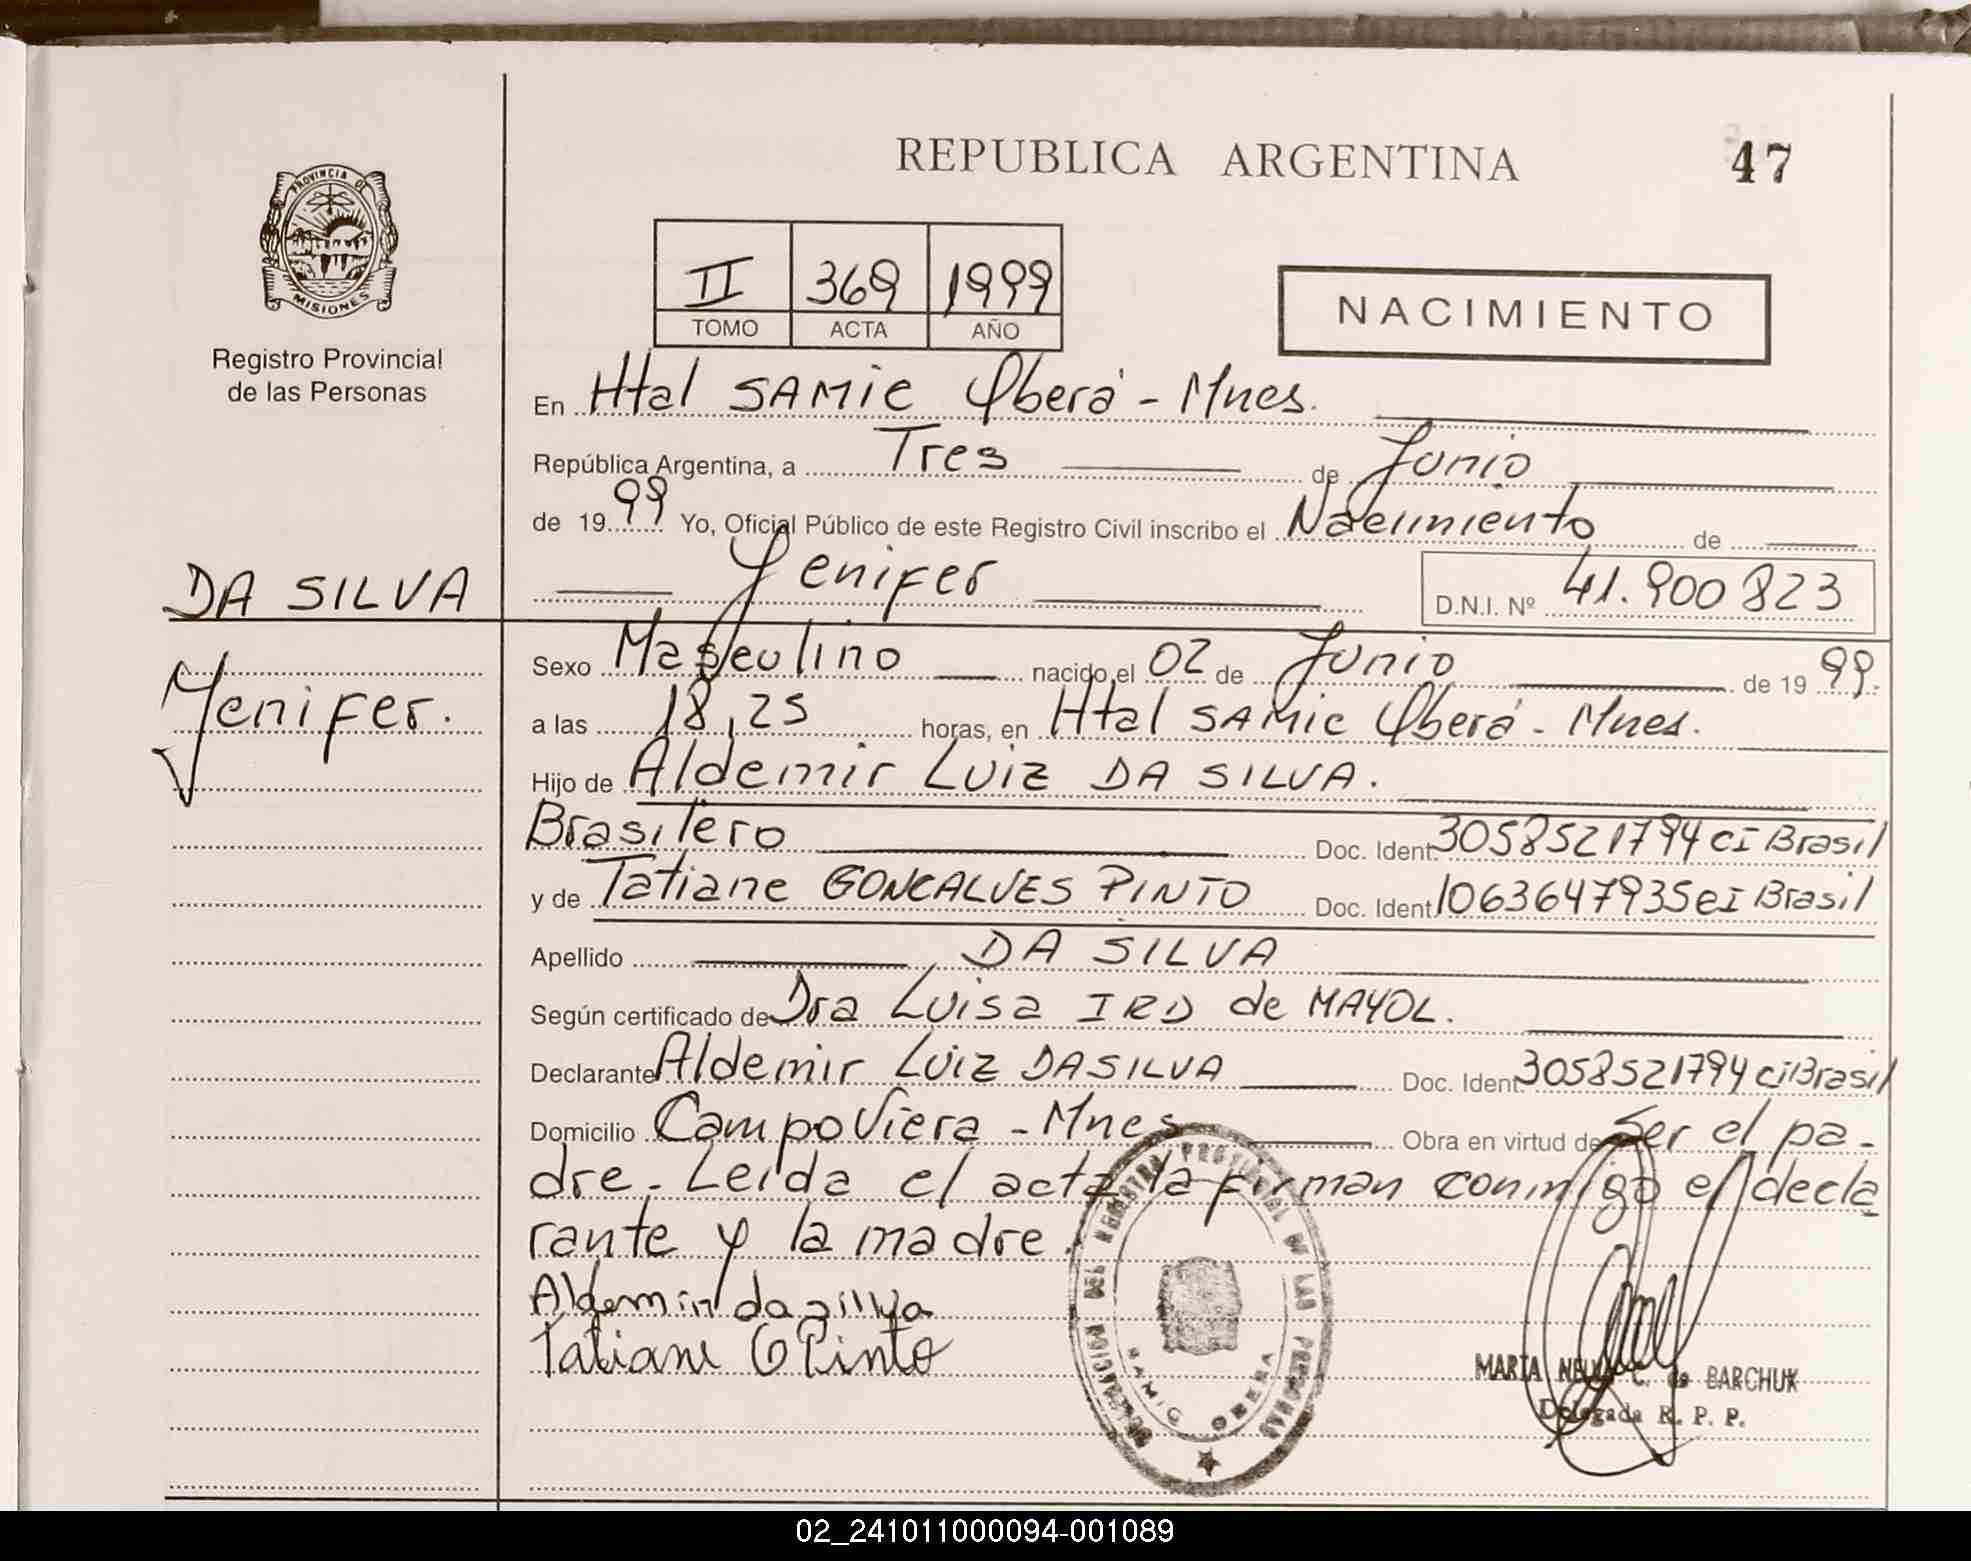 REPUBLICA ARGENTINA
47
PROVINCIA DE
MISIONES
Registro Provincial
de las Personas
II 369 1999
TOMO ACTA AÑO
NACIMIENTO
En Htal SAMIC Oberá - Mnes.
República Argentina, a Tres de Junio
de 1999 Yo, Oficial Público de este Registro Civil inscribo el Nacimiento de
Yenifer
D.N.I. Nº 41.900823
DA SILVA
Yenifer.
Sexo Masculino nacido el 02 de Junio de 1999.
a las 18,25 horas, en Htal SAMIC Oberá - Mnes.
Hijo de Aldemir Luiz DA SILVA.
Brasilero Doc. Ident. 3058521794 CI Brasil
y de Tatiane GONCALVES PINTO Doc. Ident. 1063647935 CI Brasil
Apellido DA SILVA
Según certificado de Dra Luisa IRD de MAYOL.
Declarante Aldemir Luiz DA SILVA Doc. Ident. 3058521794 CI Brasil
Domicilio Campo Viera - Mnes Obra en virtud de Ser el pa-
dre. Leida el acta la firman conmigo el decla
rante y la madre.
Aldemir da silva
Tatiane G Pinto
DELEGACION DEL REGISTRO PROVINCIAL DE LAS PERSONAS
SAMIC OBERA
MARIA NELLI C. de BARCHUK
Delegada R. P. P.
02_241011000094-001089